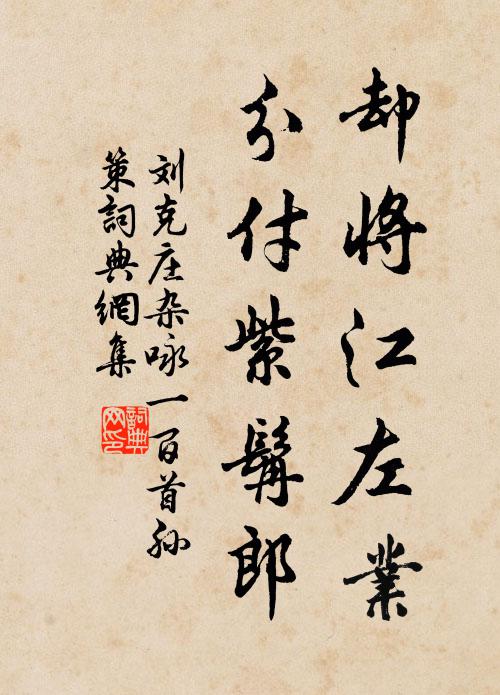 却将江左業
分付紫髯郎
刘克庄杂咏一百首孙
策詞典網集
詞典
网印